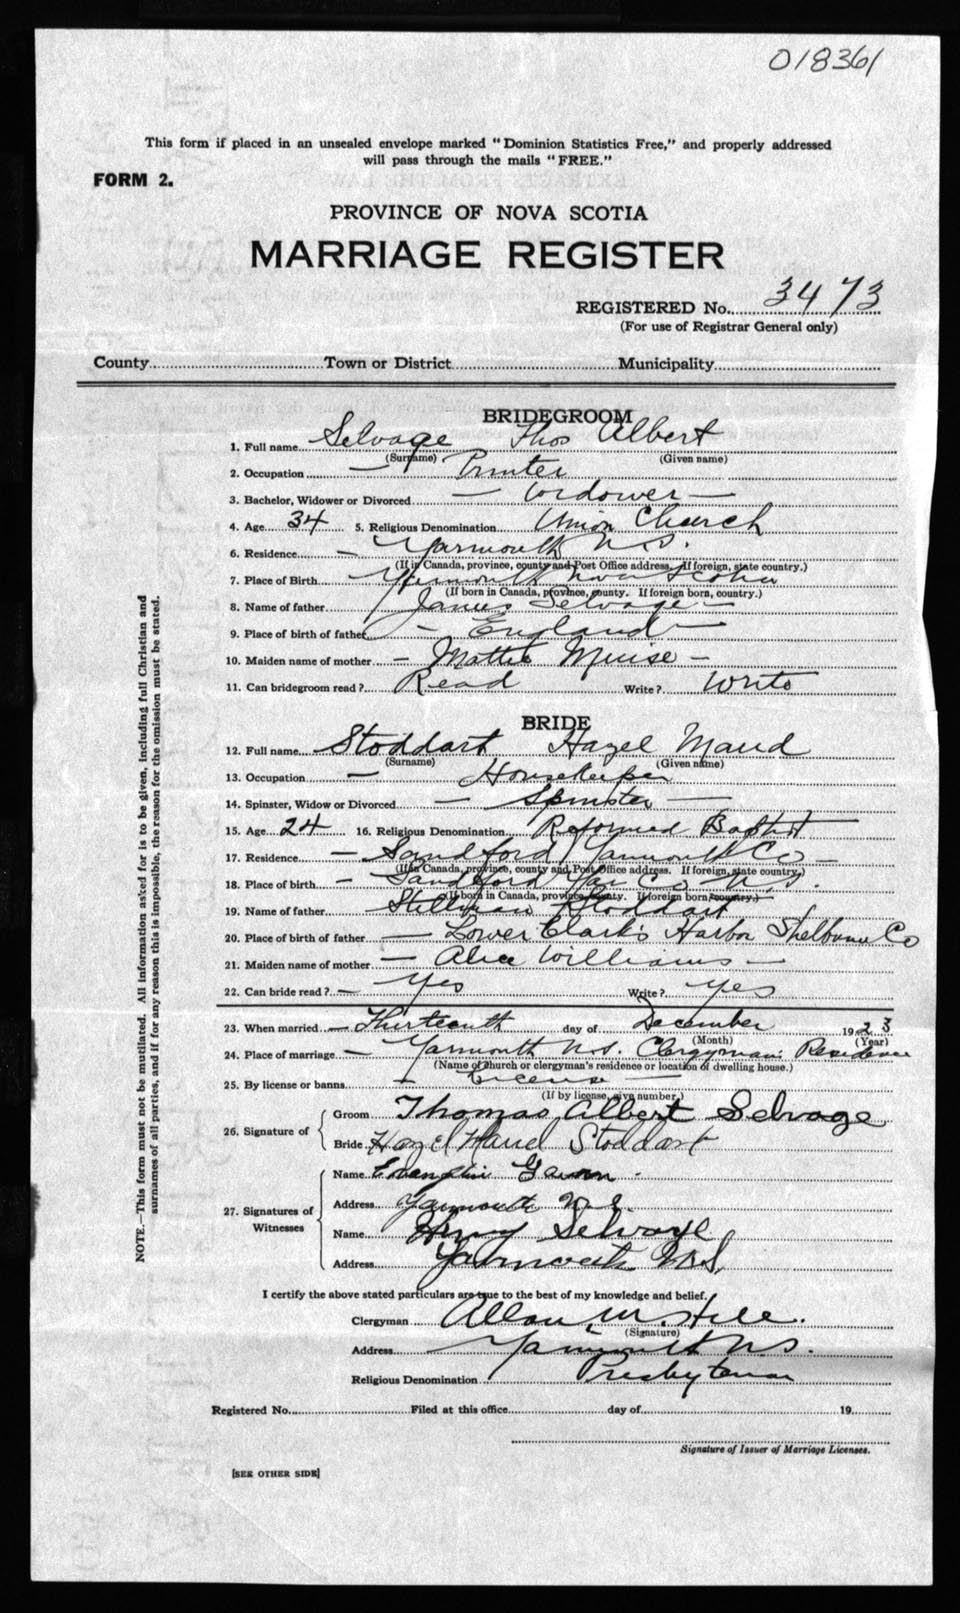 018361
This form if placed in an unsealed envelope marked "Dominion Statistics Free," and properly addressed
will pass through the mails "FREE."
FORM 2.
PROVINCE OF NOVA SCOTIA
MARRIAGE REGISTER
REGISTERED No. 3473
(For use of Registrar General only)
County Town or District Municipality
BRIDEGROOM
1. Full name Selvage Thos Albert
(Surname) (Given name)
2. Occupation — Printer
3. Bachelor, Widower or Divorced — Widower —
4. Age 34 5. Religious Denomination Union Church
6. Residence — Yarmouth N.S.
(If in Canada, province, county and Post Office address. If foreign, state country.)
7. Place of Birth Yarmouth Nova Scotia
(If born in Canada, province, county. If foreign born, country.)
8. Name of father James Selvage —
9. Place of birth of father — England —
10. Maiden name of mother — Mattie Muise —
11. Can bridegroom read? Read Write? Write
BRIDE
12. Full name Stoddart Hazel Maud
(Surname) (Given name)
13. Occupation — Housekeeper
14. Spinster, Widow or Divorced — Spinster —
15. Age 24 16. Religious Denomination Reformed Baptist
17. Residence — Sandford Yarmouth Co —
(If in Canada, province, county and Post Office address. If foreign, state country.)
18. Place of birth — Sandford Yar Co N.S.
(If born in Canada, province, county. If foreign born, country.)
19. Name of father Stillman Stoddart
20. Place of birth of father — Lower Clark's Harbor Shelburne Co
21. Maiden name of mother — Alice Williams —
22. Can bride read? — Yes Write? Yes
23. When married — Thirteenth day of December 1923
(Month) (Year)
24. Place of marriage — Yarmouth N.S. Clergyman's Residence
(Name of church or clergyman's residence or location of dwelling house.)
25. By license or banns — License —
(If by license, give number.)
26. Signature of
Groom Thomas Albert Selvage
Bride Hazel Maud Stoddart
27. Signatures of Witnesses
Name
Address Yarmouth N.S.
Name Henry Selvage
Address Yarmouth N.S.
I certify the above stated particulars are true to the best of my knowledge and belief.
Clergyman Allan M. Hill.
(Signature)
Address Yarmouth N.S.
Religious Denomination Presbyterian
Registered No. Filed at this office day of 19
Signature of Issuer of Marriage Licenses.
[SEE OTHER SIDE]
NOTE.—This form must not be mutilated. All information asked for is to be given, including full Christian and
surnames of all parties, and if for any reason this is impossible, the reason for the omission must be stated.